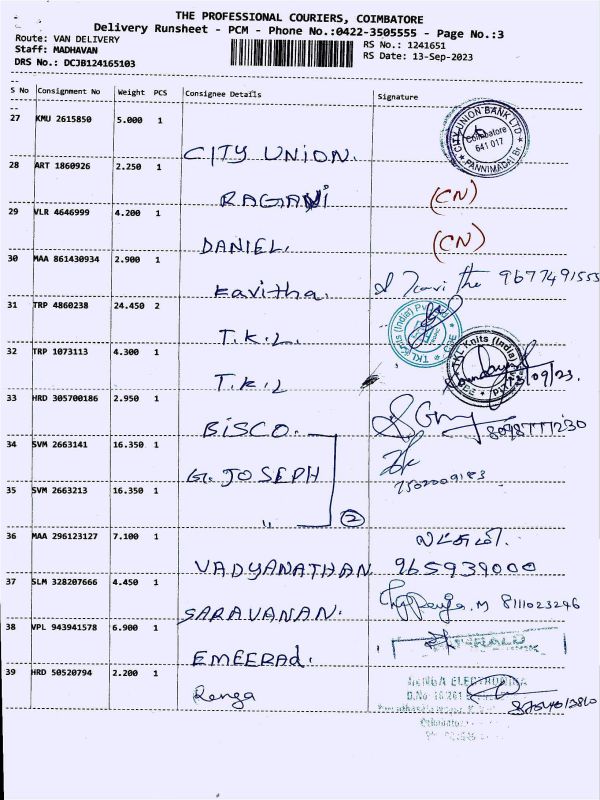 THE PROFESSIONAL COURIERS, COIMBATORE
Delivery Runsheet - PCM - Phone No.:0422-3505555 - Page No.:3
Route: VAN DELIVERY
Staff: MADHAVAN
DRS No.: DCJB124165103
RS No.: 1241651
RS Date: 13-Sep-2023
S No Consignment No Weight PCS Consignee Details Signature
27 KMU 2615850 5.000 1
CITY UNION BANK LTD
Coimbatore
641 017
PANNIMADAI Br.
CITY UNION.
28 ART 1860926 2.250 1
RAGAVI (CN)
29 VLR 4646999 4.200 1
DANIEL. (CN)
30 MAA 861430934 2.900 1
Kavitha. 9677491555
31 TRP 4860238 24.450 2
TKL Knits (India) Pvt Ltd
T.K.L.
32 TRP 1073113 4.300 1
TKL Knits (India)
T.K.L 13/09/23.
33 HRD 305700186 2.950 1
BISCO. 8098777230
34 SVM 2663141 16.350 1
G. JOSEPH
7502009183
35 SVM 2663213 16.350 1
" 2
36 MAA 296123127 7.100 1
லட்சுமி.
VADYANATHAN 965939000
37 SLM 328207666 4.450 1
SARAVANAN. M 8111023246
38 VPL 943941578 6.900 1
EMEERAd.
39 HRD 50520794 2.200 1
RENGA ELECTRONICS
D.No
Renga